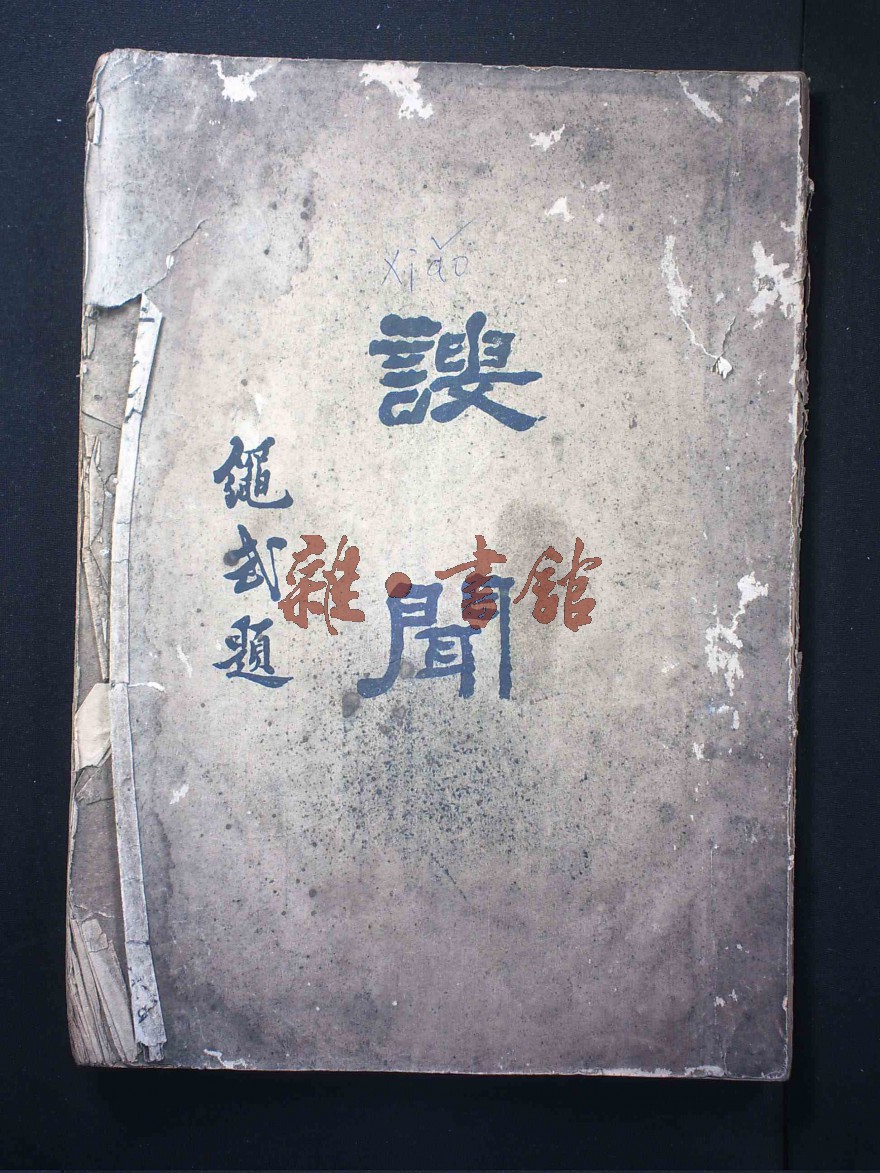 xiǎo
謏
聞
繩武題
雜·書館